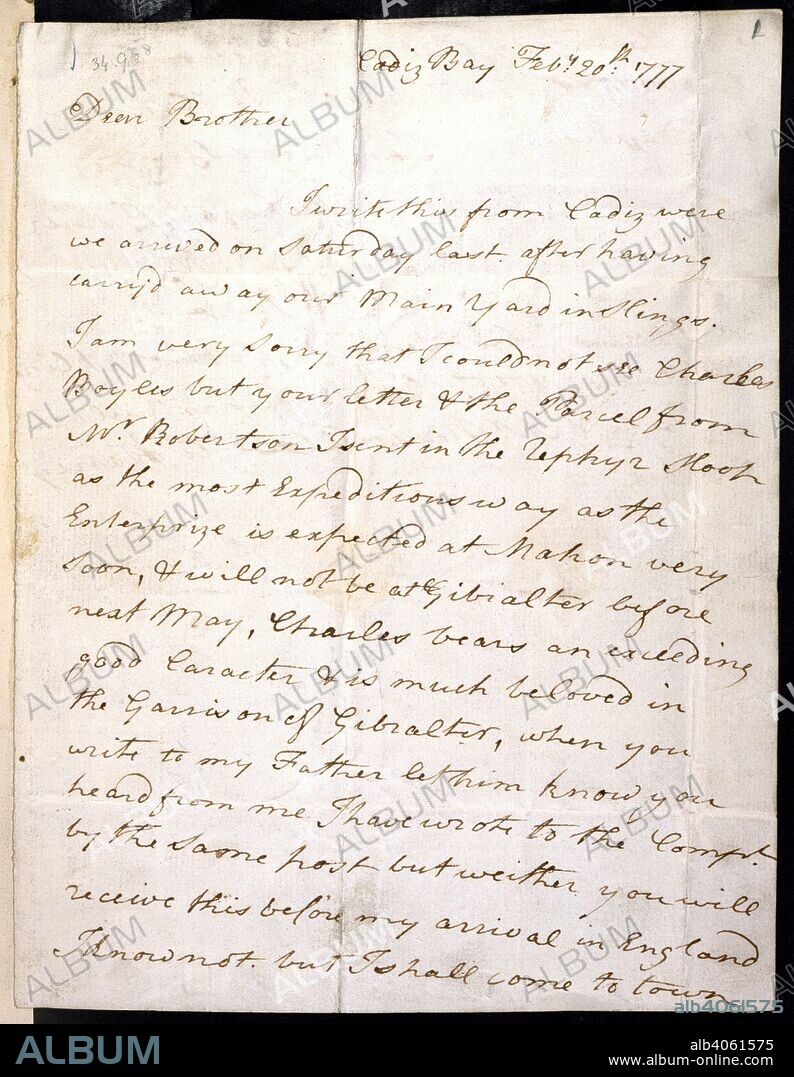 34,958
1
Cadiz Bay Feby 20th 1777
Dear Brother
I write this from Cadiz were
we arrived on Saturday last after having
carry'd away our Main Yard in Slings.
I am very Sorry that I could not see Charles
Boyles but your letter & the Parcel from
Mr Robertson I sent in the Zephyr Sloop
as the most Expeditious way as the
Enterprize is expected at Mahon very
Soon, & will not be at Gibralter before
next May, Charles bears an exceeding
good Caracter & is much beloved in
the Garrison of Gibralter, when you
write to my Father let him know you
heard from me I have wrote to the Compt.
by the Same post but weither you will
receive this before my arrival in England
I know not. but I shall come to town
ALBUM
alb4061575
ALBUM
alb4061575
www.album-online.com